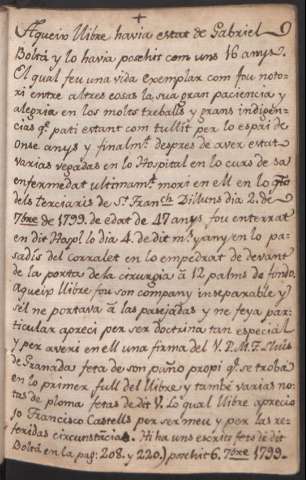 +
Aqueix llibre havia estat de Gabriel
Boltá y lo havia posehit com uns 16 anys.
El qual feu una vida exemplar com fou noto-
ri entre altres cosas la sua gran paciencia y
alegria en los molts treballs y grans indigèn-
cias q.e patí estant com tullit per lo espai de
onse anys y finalm.t despres de aver estat
varias vegadas en lo Hospital en lo curs de sa
enfermedat ultimam.t morí en ell en lo
dels terciaris de S.t Fran.ch Dilluns dia 2. de
7bre de 1799. de edat de 47 anys fou enterrat
en dit Hap.l lo dia 4. de dit m.s y any en lo pa-
sadís del corralet en lo empedrat de devant
de la porta de la cirurgia á 12 palms de fondo.
Aqueix llibre fou son company inseparable y
sel ne portava á las pasejadas y ne feya par-
ticular apreci per ser doctrina tan especial
y per averi en ell una firma del V. P. M. F. Lluis
de Granada feta de son puño propi q.e se troba
en lo primer full del llibre y també varias no-
tas de ploma fetas de dit V. Lo qual llibre aprecio
jo Francisco Castells per ser meu y per las re-
feridas circunstáncias. Hi ha uns escrits fets de dit
Boltá en la pag: 208. y 220.) 6. 7bre 1799.